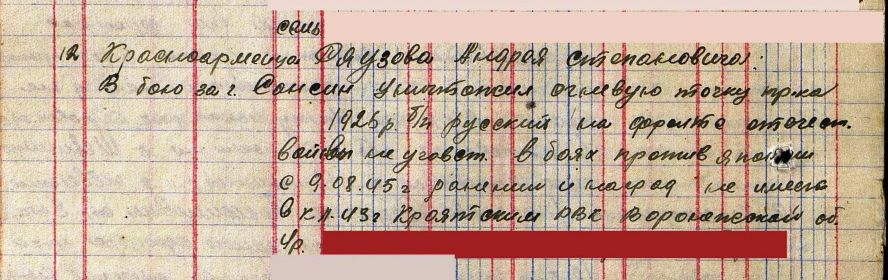 семь
12 Красноармейца Фаузова Андрея Степановича.
В бою за г. Сансин уничтожил огневую точку пр-ка
1926 р. б/п русский на фронте отечест.
войны не участ. в боях против японии
с 9.08.45 г ранений и наград не имеет
в к.а. 43 г РВК Воронежской об.
ч/р.